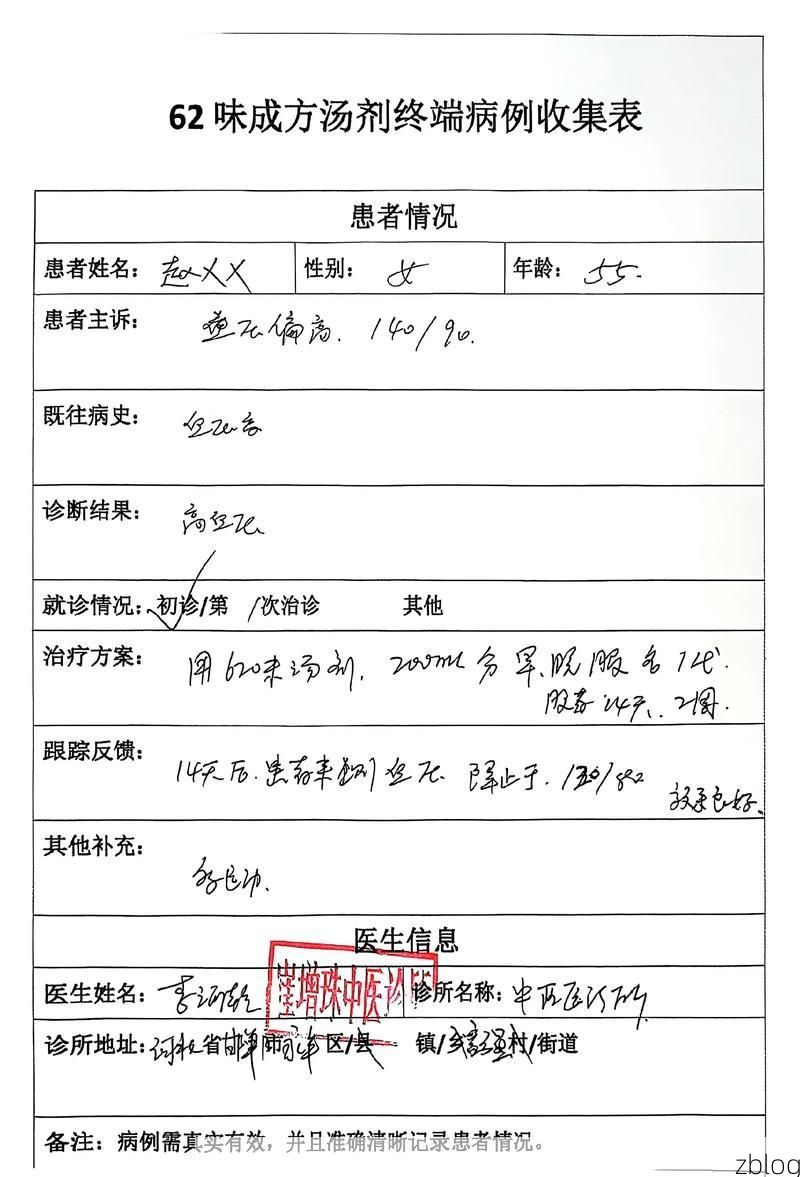 62味成方汤剂终端病例收集表
患者情况
患者姓名：赵XX 性别：女 年龄：55.
患者主诉：血压偏高. 140/90.
既往病史：血压高
诊断结果：高血压
就诊情况：初诊/第 /次治诊 其他
治疗方案：用620味汤剂, 200ml 分早、晚服各1代.
服药14天、2周.
跟踪反馈：14天后. 患者来测血压 降止于.
效果良好、
其他补充：多运动.
医生信息
医生姓名：李 诊所名称：中医医诊所
崔增珠中医诊所
诊所地址：河北省邯郸市 区/县 镇/乡 村/街道
备注：病例需真实有效，并且准确清晰记录患者情况。
zblog